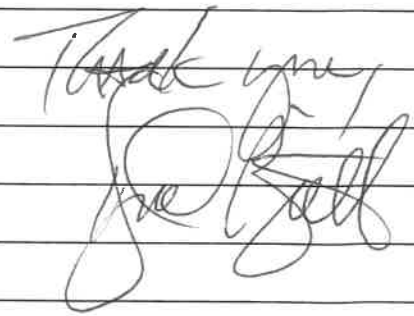 Thank you,
Joe Ball